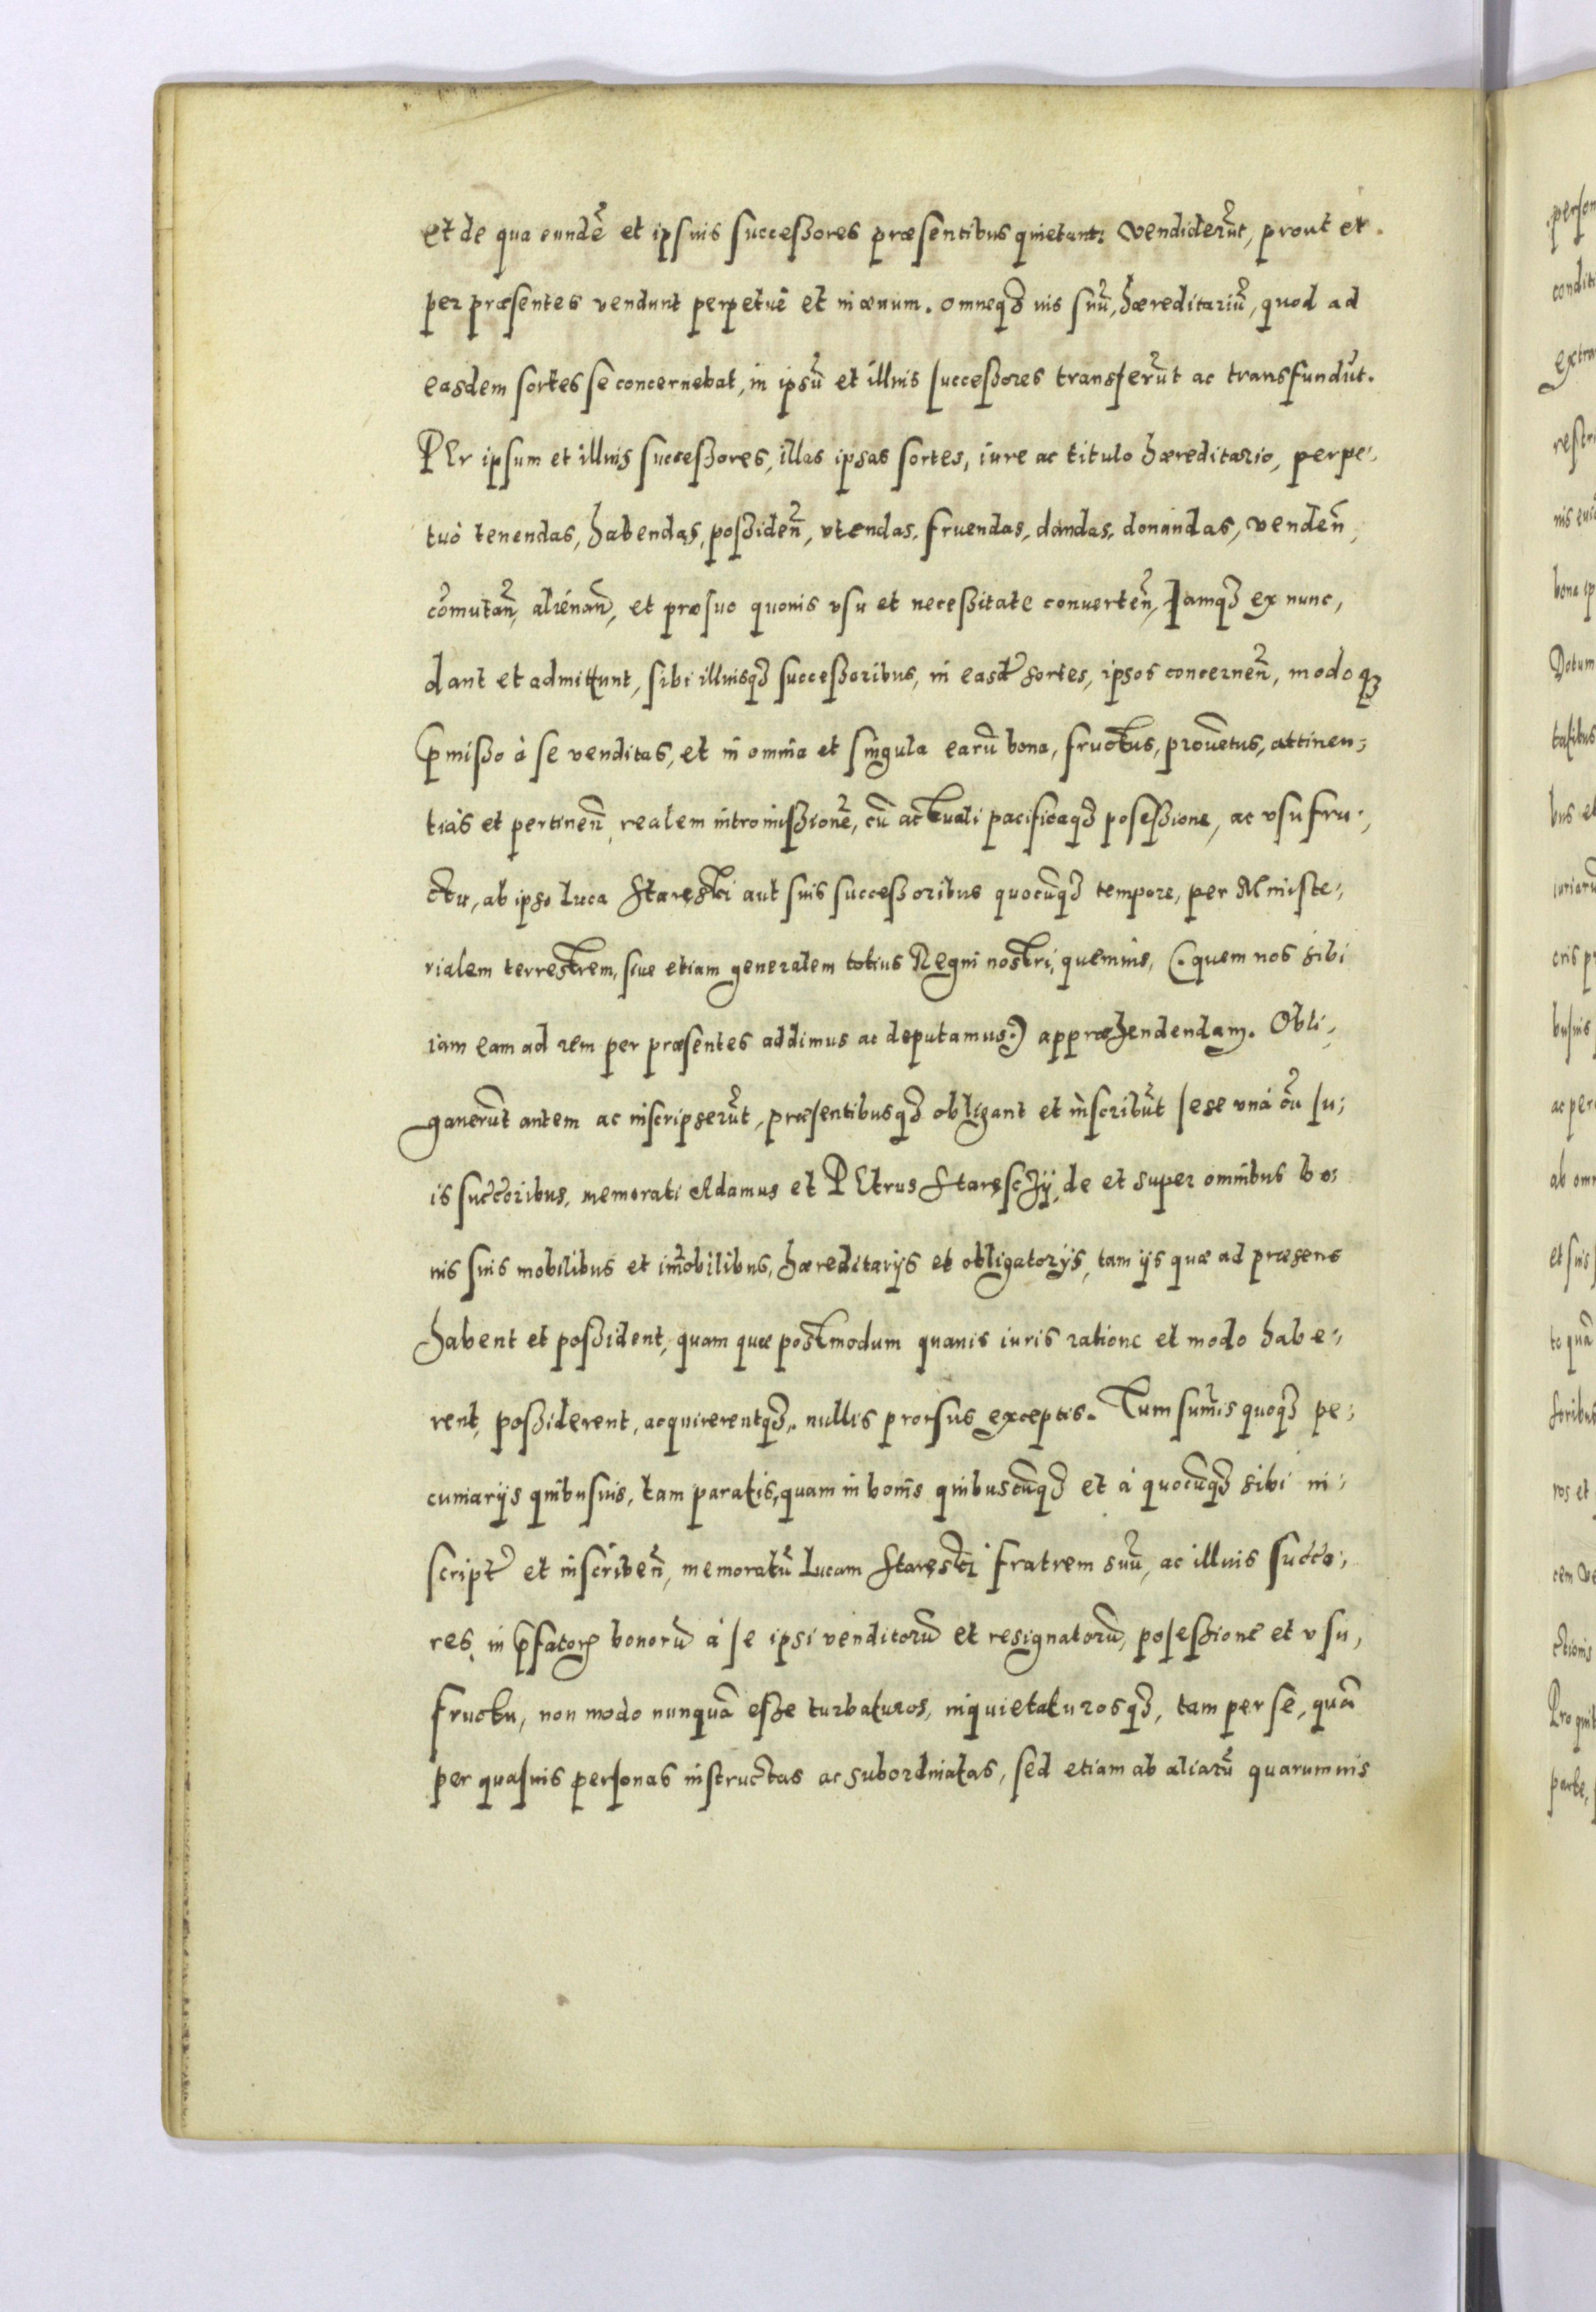 et de qua eundē et ipsiuis succeßores præsentibus quietant: vendiderūt, prout et
per præsentes vendunt perpetuē et in æuum. omneqȝ ius suū, hæreditariū, quod ad
easdem sortes se concernebat, in ipsū et illius succeßores transferūt ac transfundūt.
PEr ipsum et illius succeßores, illas ipsas sortes, iure ac titulo hæreditario, perpe-,
tuò tenendas, habendas, poßiden̄, vtendas, fruendas, dandas, donandas, venden̄,
cōmutan̄, alienan̄, et pro suo quouis vsu et neceßitate conuerten̄, Iamqȝ ex nunc,
dant et admittunt, sibi illiusqȝ succeßoribus, in easd' sortes, ipsos concernen̄, modo qȝ
p̄mißo à se venditas, et in omnia et singula earū bona, fructus, prouētus, attinen-;
tias et pertinen̄, realem intromißionē, cū actuali pacificaqȝ poseßione, ac vsufru-,
ctu, ab ipso Luca Staręski aut suis succeßoribus quocūqȝ tempore, per Ministe-,
rialem terrestrem, siue etiam generalem totius Regni nostri, quemuis, (. quem nos sibi
iam eam ad rem per præsentes addimus ac deputamus.) appræhendendam. Obli-,
gauerūt autem ac inscripserūt, præsentibusqȝ obligant et inscribūt sese vná cū su-;
is succ̄oribus, memorati Adamus et PEtrus Staręscÿ, de et super omnibus bo-
nis suis mobilibus et im̄obilibus, hæreditarijs et obligatorijs, tam ijs quæ ad præsens
habent et poßident, quam quæ postmodum quauis iuris ratione et modo habe-,
rent, poßiderent, acquirerentqȝ, nullis prorsus exceptis. Tum sum̄is quoqȝ pe-;
cuniarijs quibusuis, tam paratis, quam in bonis quibuscūqȝ et à quocūqȝ sibi in-
script' et inscriben̄, memoratū Lucam Staręski fratrem suū, ac illius succ̄o-,
res, in p̄fator̄ bonorū à se ipsi venditorū et resignatorū, poseßione et vsu,
fructu, non modo nunquā eße turbaturos, inquietaturosqȝ, tam per se, quā
per quasuis personas instructas ac subordinatas, sed etiam ab aliarū quarumuis